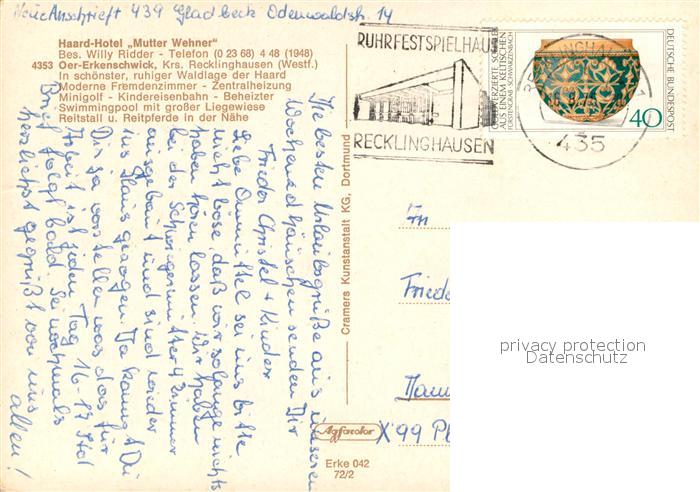 Neue Anschrift 439 Gladbeck Odenwaldstr. 14
Haard-Hotel „Mutter Wehner"
Bes. Willy Ridder - Telefon (0 23 68) 4 48 (1948)
4353 Oer-Erkenschwick, Krs. Recklinghausen (Westf.)
In schönster, ruhiger Waldlage der Haard
Moderne Fremdenzimmer - Zentralheizung
Minigolf - Kindereisenbahn - Beheizter
Swimmingpool mit großer Liegewiese
Reitstall u. Reitpferde in der Nähe
Die besten Urlaubsgrüße aus unserem
Wochenendhäuschen senden Dir
Frieder Christel + Kinder
Liebe Ommi sei uns bitte
nicht böse, daß wir solange nichts
haben hören lassen. Wir haben
bei der Schwiegermutter 4 Zimmer
ausgebaut und sind wieder
ins Haus gezogen. Da kannst Du
Dir ja vorstellen was das für
Arbeit ist jeden Tag 16-17 Std
Brief folgt bald. Sei nochmals
herzlichst gegrüßt von uns
allen!
Cramers Kunstanstalt KG, Dortmund
Agfacolor
Erke 042
72/2
RUHRFESTSPIELHAUS
RECKLINGHAUSEN
435
GOLDVERZIERTE SCHALE
AUS EINEM KELTISCHEN
FÜRSTENGRAB · SCHWARZENBACH
DEUTSCHE BUNDESPOST
40
Friede
X 99 Pl
privacy protection
Datenschutz